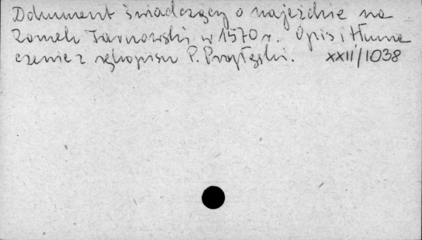 Dokument świadczący o najeździe na
Zamek Tarnowski w 1570 r. Opis i tłuma
czenie z rękopisu P. Przyłęski. XXII/1038